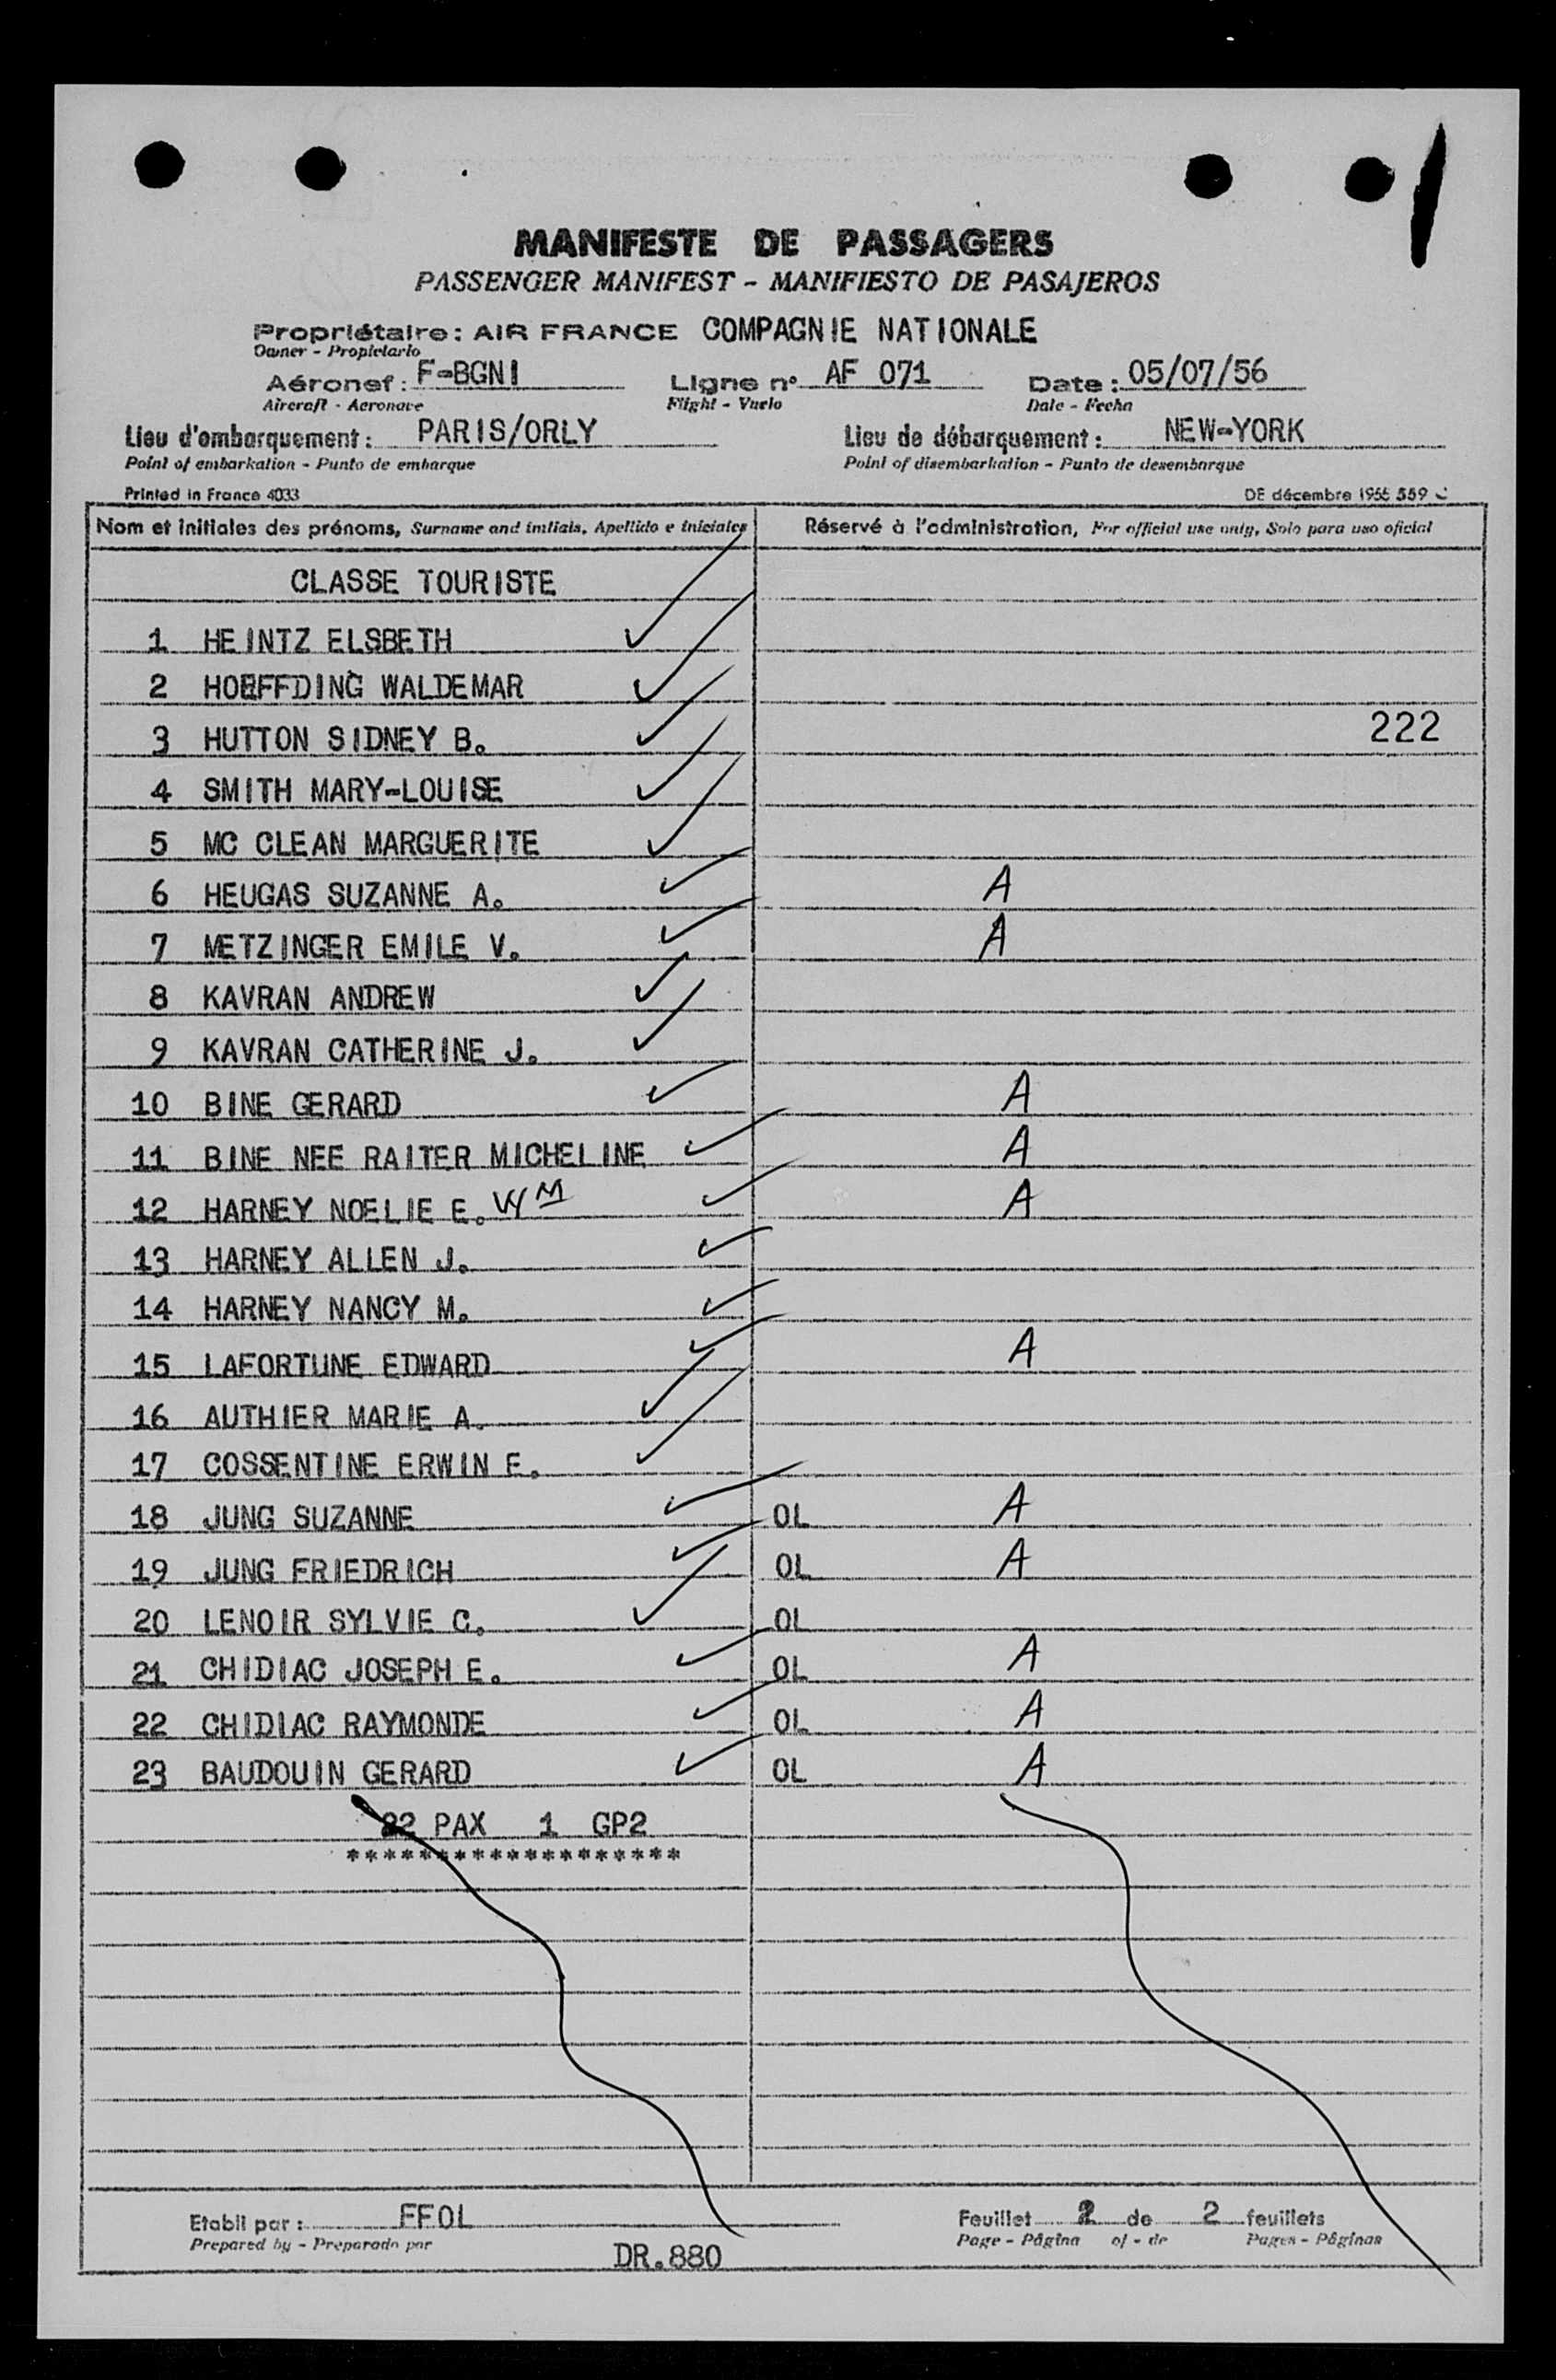 MANIFESTE DE PASSAGERS
PASSENGER MANIFEST - MANIFIESTO DE PASAJEROS
Propriétaire : AIR FRANCE COMPAGNIE NATIONALE
Owner - Propietario
Aéronef : F-BGNI Ligne n° AF 071 Date : 05/07/56
Aircraft - Aeronave Flight - Vuelo Date - Fecha
Lieu d'embarquement : PARIS/ORLY Lieu de débarquement : NEW-YORK
Point of embarkation - Punto de embarque Point of disembarkation - Punto de desembarque
Printed in France 4033 DE décembre 1955 559
Nom et initiales des prénoms, Surname and initials, Apellido e iniciales Réservé à l'administration, For official use only, Solo para uso oficial
CLASSE TOURISTE
1 HEINTZ ELSBETH
2 HOEFFDING WALDEMAR
3 HUTTON SIDNEY B. 222
4 SMITH MARY-LOUISE
5 MC CLEAN MARGUERITE
6 HEUGAS SUZANNE A. A
7 METZINGER EMILE V. A
8 KAVRAN ANDREW
9 KAVRAN CATHERINE J.
10 BINE GERARD A
11 BINE NEE RAITER MICHELINE A
12 HARNEY NOELIE E. WM A
13 HARNEY ALLEN J.
14 HARNEY NANCY M.
15 LAFORTUNE EDWARD A
16 AUTHIER MARIE A.
17 COSSENTINE ERWIN E.
18 JUNG SUZANNE OL A
19 JUNG FRIEDRICH OL A
20 LENOIR SYLVIE C. OL
21 CHIDIAC JOSEPH E. OL A
22 CHIDIAC RAYMONDE OL A
23 BAUDOUIN GERARD OL A
22 PAX 1 GP2
*******************
Etabli par : FFOL Feuillet 2 de 2 feuillets
Prepared by - Preparado por Page - Página of - de Pages - Páginas
DR.880